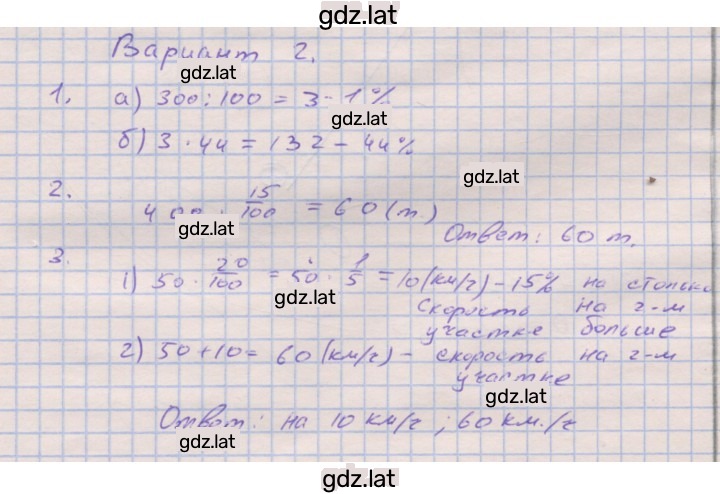 gdz.lat
Вариант 2.
gdz.lat
1. а) 300:100 = 3 - 1%
gdz.lat
б) 3 · 44 = 132 - 44%
gdz.lat
2. 400 · 15/100 = 60 (т.)
gdz.lat
Ответ: 60 т.
3.
1) 50 · 20/100 = 50 · 1/5 = 10 (км/г) - 15% на столько
gdz.lat
скорость на 2-м
участке больше
2) 50 + 10 = 60 (км/г) - скорость на 2-м
участке
gdz.lat
Ответ: на 10 км/г ; 60 км./г
gdz.lat
gdz.lat